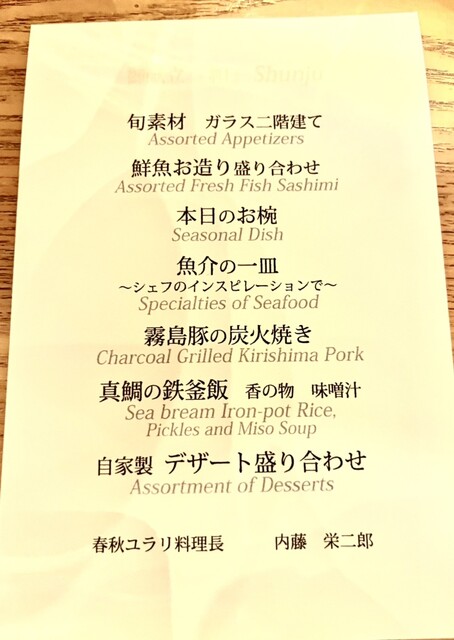 旬素材　ガラス二階建て
Assorted Appetizers
鮮魚お造り盛り合わせ
Assorted Fresh Fish Sashimi
本日のお椀
Seasonal Dish
魚介の一皿
～シェフのインスピレーションで～
Specialties of Seafood
霧島豚の炭火焼き
Charcoal Grilled Kirishima Pork
真鯛の鉄釜飯　香の物　味噌汁
Sea bream Iron-pot Rice,
Pickles and Miso Soup
自家製 デザート盛り合わせ
Assortment of Desserts
春秋ユラリ料理長　内藤　栄二郎